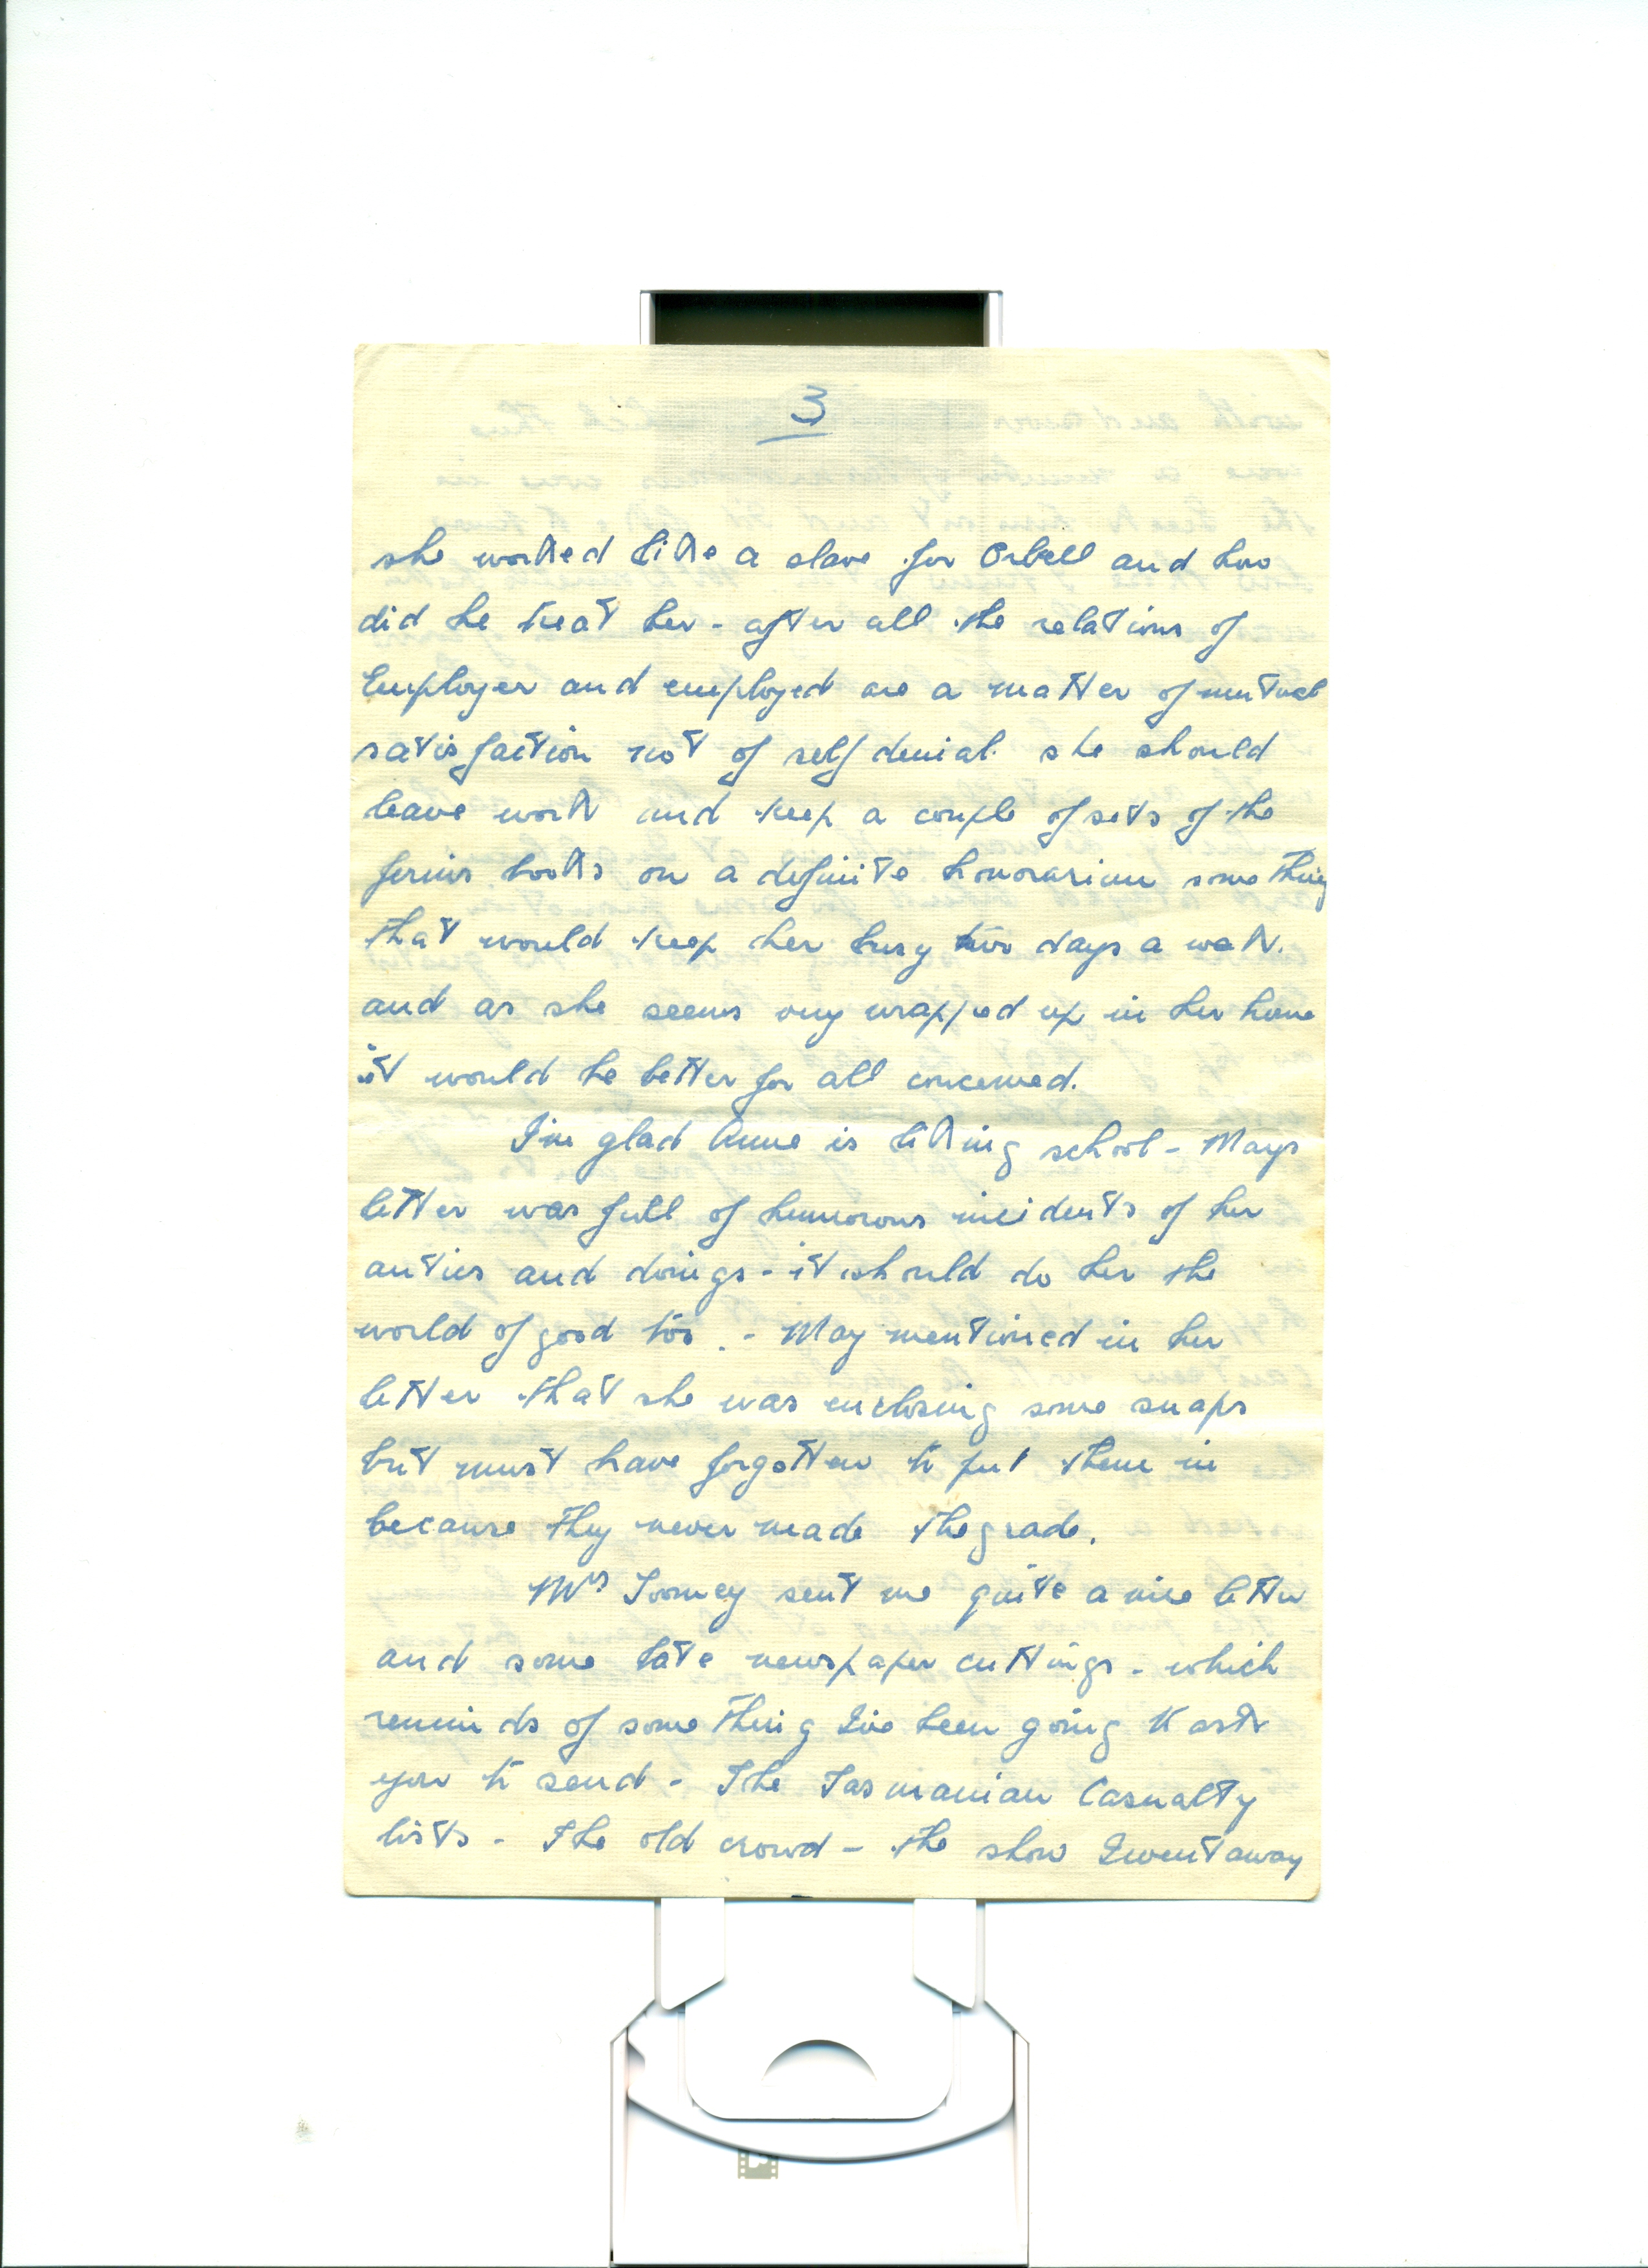 3
she worked like a slave for Orbell and how
did he treat her - after all the relations of
Employer and employed are a matter of mutual
satisfaction not of self denial. she should
leave work and keep a couple of sets of the
firms books on a definite honorarium something
that would keep her busy two days a week.
and as she seems very wrapped up in her home
it would be better for all concerned.
I'm glad Anne is liking school - Mays
letter was full of humorous incidents of her
antics and doings - it should do her the
world of good too. - May mentioned in her
letter that she was enclosing some snaps
but must have forgotten to put them in
because they never made the grade.
Mrs Toomey sent me quite a nice letter
and some late newspaper cuttings - which
reminds of something I've been going to ask
you to send - The Tasmanian Casualty
lists - The old crowd - the show I went away